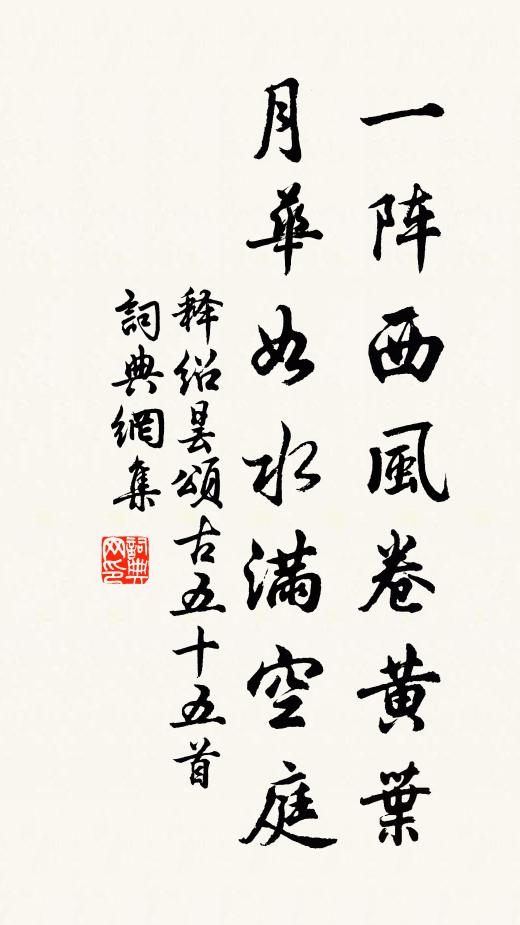 一阵西風卷黄葉
月華如水滿空庭
释紹曇頌古五十五首
詞典網集
詞典网印